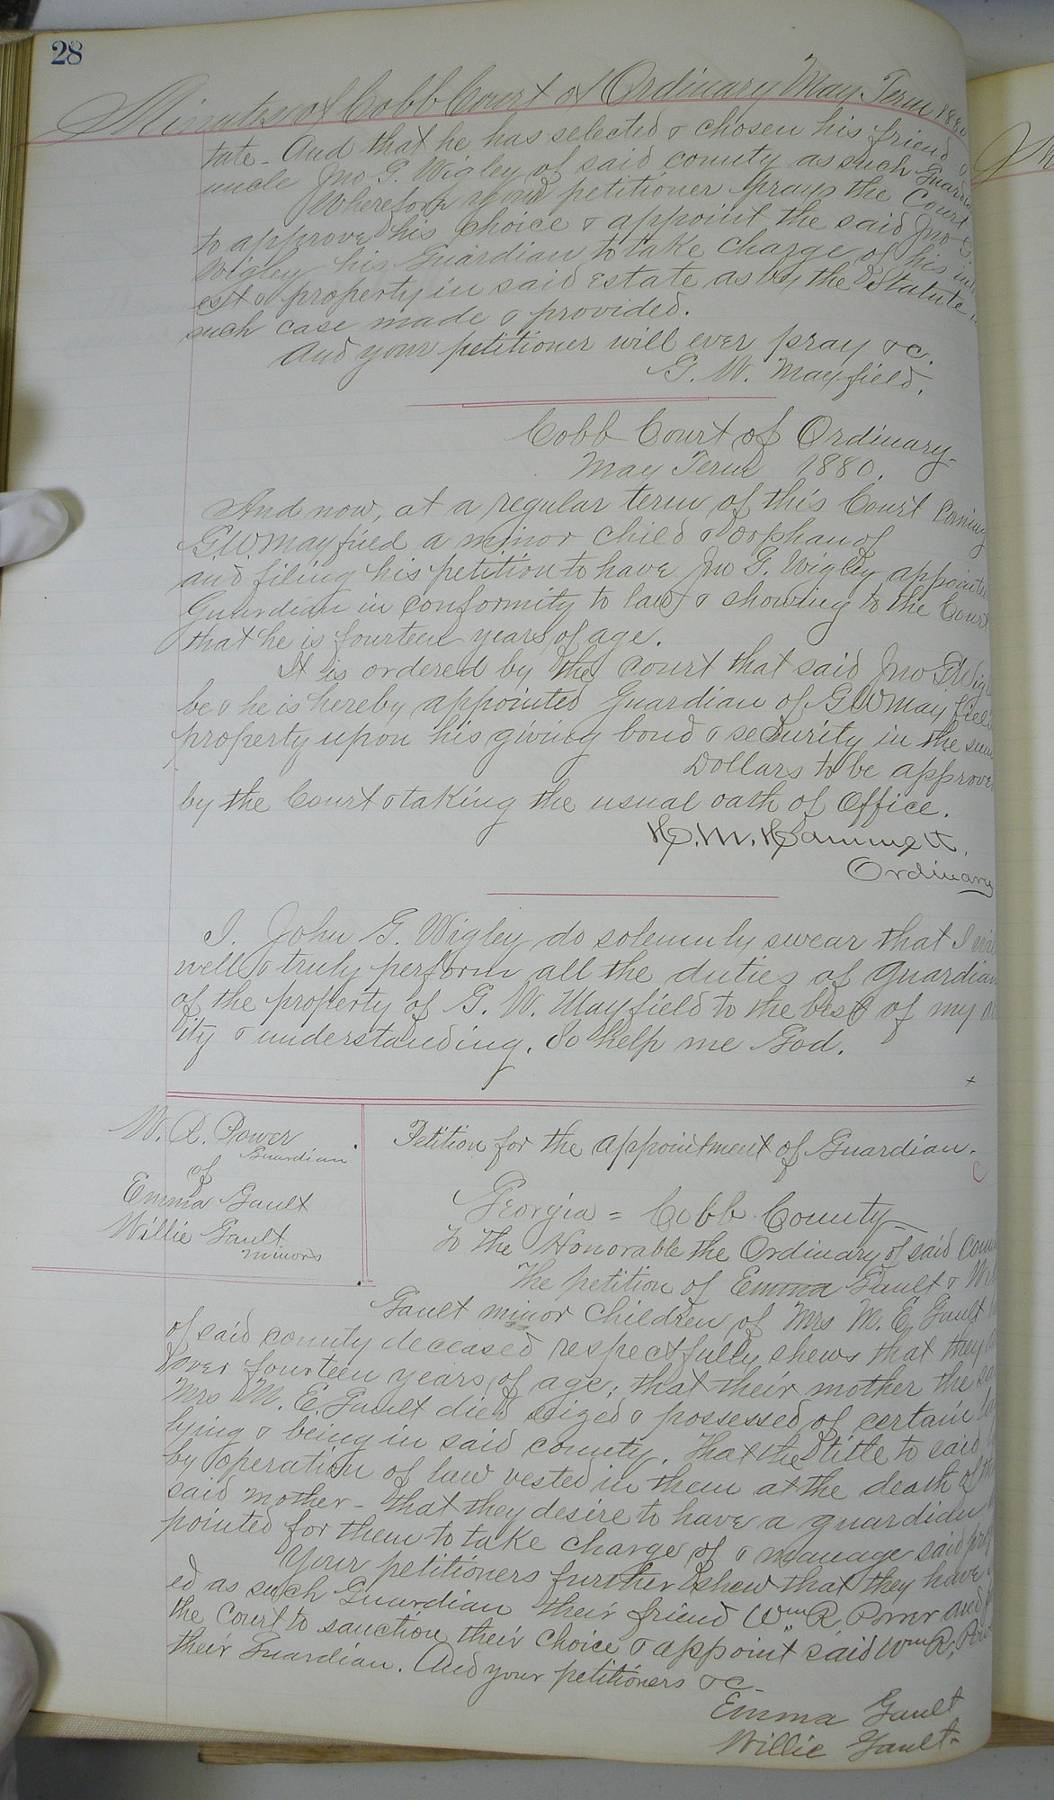 28
Minutes of Cobb Court of Ordinary May Term 1880
tate - And that he has selected & chosen his friend &
uncle Jno G. Wigley of said county as such Guard
Wherefore your petitioner prays the Court
to approve his choice & appoint the said Jno G
Wigley his Guardian to take charge of his int
est & property in said Estate as by the Statute in
such case made & provided.
And your petitioner will ever pray &c.
G. W. Mayfield.
Cobb Court of Ordinary-
May Term 1880.
And now, at a regular term of this Court coming
G W Mayfield a minor child & orphan of
and filing his petition to have Jno G. Wigley appointe
Guardian in conformity to law & showing to the Court
that he is fourteen years of age.
It is ordered by the court that said Jno G Wig
be & he is hereby appointed Guardian of G W Mayfield
property upon his giving bond & security in the sum
Dollars to be approve
by the Court & taking the usual oath of Office.
H. M. Hammett.
Ordinary
I. John G. Wigley do solemnly swear that I will
well & truly perform all the duties of Guardian
of the property of G. W. Mayfield to the best of my
ity & understanding. So help me God.
W. R. Power
Guardian
of
Emma Gault
Willie Gault
minors
Petition for the appointment of Guardian.
Georgia = Cobb County-
To the Honorable the Ordinary of said Coun
The petition of Emma Gault & Wil
Gault minor children of Mrs M. E. Gault
of said county deceased respectfully shews that they
over fourteen years of age; that their mother the
Mrs M. E. Gault died seized & possessed of certain
lying & being in said county. That the title to said
by operation of law vested in them at the death of
said mother - that they desire to have a guardian
pointed for them to take charge of & manage said
Your petitioners further shew that they have
ed as such Guardian their friend Wm R. Power and
the Court to sanction their choice & appoint said Wm R. Pow
their Guardian. And your petitioners &c-
Emma Gault
Willie Gault-